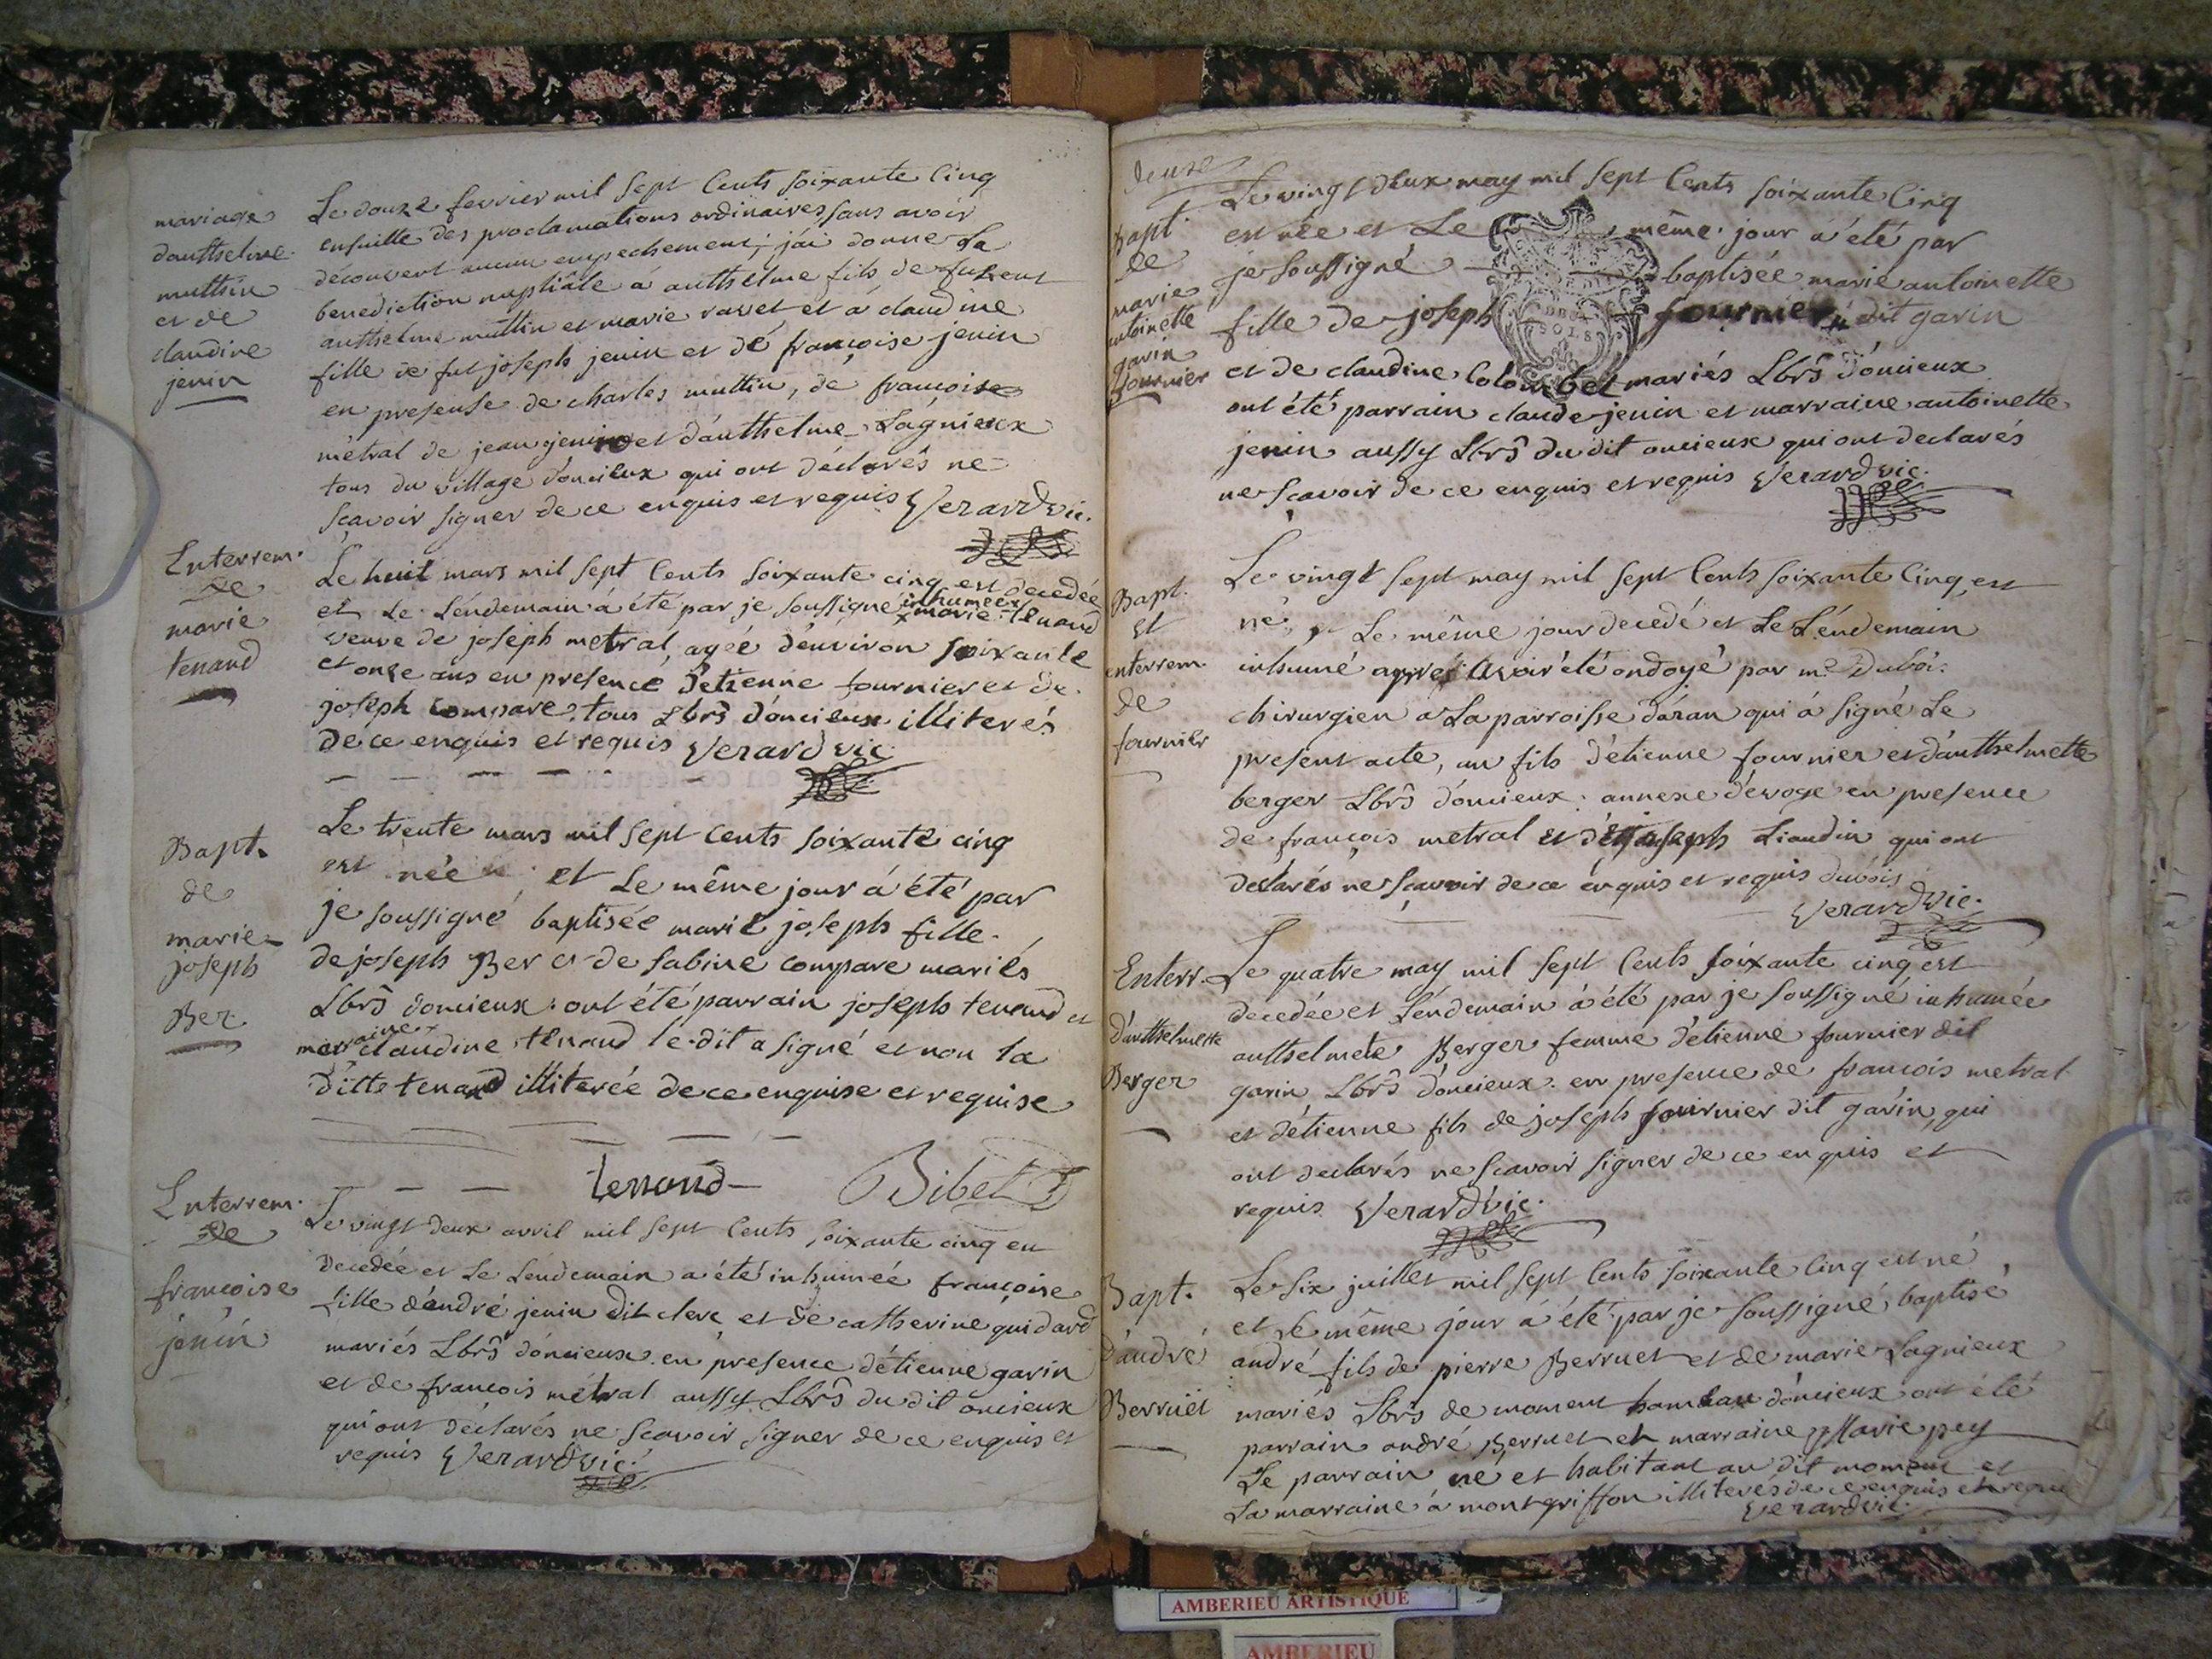 mariage
danthelme
muttin
et de
claudine
jenin
Le douze fevrier mil sept Cents soixante Cinq
ensuitte des proclamations ordinaires, sans avoir
découvert aucun empechement; j'ai donné La
benediction nuptiâle à anthelme fils de furent
anthelme muttin et marie ravet et à claudine
fille de fut joseph jenin et dé françoise jenin
en presense de charles muttin, de françoise
métral de jean jenin et d'anthelme Lagnieux
tous du village d'oncieux qui ont déclarés ne
scavoir signer de ce enquis et requis Verard vic.
Enterrem.
de
marie
tenand
Le huit mars mil sept Cents soixante cinq est decedée
et Le Lendemain à été par je soussigné inhumée marie tenand
veuve de joseph metral, agée d'environ soixante
et onze ans en presence d'etienne fournier et de
joseph compare tous Lbrs d'oncieux illiterés
de ce enquis et requis Verard vic.
Bapt.
de
marie
joseph
Ber
Le trente mars mil sept cents soixante cinq
est née et Le même jour à été par
je soussigné baptisée marie joseph fille
de joseph Ber et de sabine compare mariés
Lbrs doncieux: ont été parrain joseph tenand et
marraine claudine tenand le dit a signé et non la
ditte tenand illiterée de ce enquise et requise
tenand Bibet
Enterrem.
de
françoise
jenin
Le vingt deux avril mil sept Cents soixante cinq en
decedée et Le Lendemain a été inhumée françoise
fille d'andré jenin dit clerc et de catherine quidard
mariés Lbrs d'oncieux en presence d'étienne garin
et de francois métral aussy Lbrs du dit oncieux
qui ont déclarés ne scavoir signer de ce enquis et
requis Verard vic.
deuxe
Bapt.
de
marie
antoinette
garin
fournier
Le vingt deux may mil sept Cents soixante Cinq
est née et Le même jour à été par
je soussigné baptisée marie antoinette
fille de joseph fournier dit garin
et de claudine Colombet mariés Lbrs d'oncieux
ont été parrain claude jenin et marraine antoinette
jenin aussy Lbrs du dit oncieux qui ont declarés
ne scavoir de ce enquis et requis Verard vic.
Bapt.
et
enterrem.
de
fournier
Le vingt sept may mil sept Cents soixante Cinq, est
né, Le même jour decedé et Le Lendemain
inhumé apres avoir été ondoyé par me Duboi.
chirurgien a La parroisse d'aran qui à signé Le
present acte, un fils d'etienne fournier et d'anthelmette
berger Lbrs d'oncieux: annexe d'evoge en presence
de françois metral et de joseph Liaudin qui ont
declarés ne scavoir de ce enquis et requis dubois
Verard vic.
Enterr.
d'anthelmette
Berger
Le quatre may mil sept Cents soixante cinq est
decedée et Lendemain à été par je soussigné inhumée
anthelmete Berger femme d'etienne fournier dit
garin Lbrs d'oncieux. en presence de francois metral
et d'étienne fils de joseph fournier dit garin, qui
ont declarés ne scavoir signer de ce enquis et
requis Verard vic.
Bapt.
d'andré
Berruët
Le six juillet mil sept Cents soixante Cinq est né
et Le même jour à été par je soussigné baptisé
andré fils de pierre Berruet et de marie Lagnieux
mariés Lbrs de moment hameau d'oncieux ont été
parrain andré Berruet et marraine Marie pey
Le parrain né et habitant au dit moment et
La marraine à montgriffon illiterés de ce enquis et requis
Verard vic.
AMBERIEU ARTISTIQUE
AMBERIEU